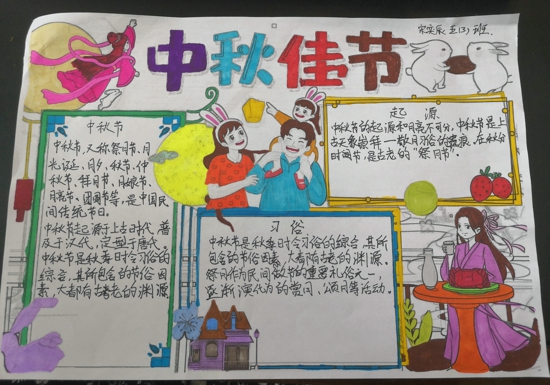 中秋佳节
宋奕辰 五(3)班
中秋节
中秋节,又称祭月节、月
光诞、月夕、秋节、仲
秋节、拜月节、月娘节、
月亮节、团圆节等,是中国民
间传统节日。
中秋节起源于上古时代,普
及于汉代,定型于唐代。
中秋节是秋季时令习俗的
综合,其所包含的节俗因
素,大都有古老的渊源
起源
中秋节的起源和月亮不可分,中秋节是上
古天象崇拜—敬月习俗的遗痕。在秋分
时间节,是古老的“祭月节”。
习俗
中秋节是秋季时令习俗的综合,其所
包含的节俗因素,大都有古老的渊源。
祭月作为民间过节的重要礼俗之一,
逐渐演化为的赏月、颂月等活动。